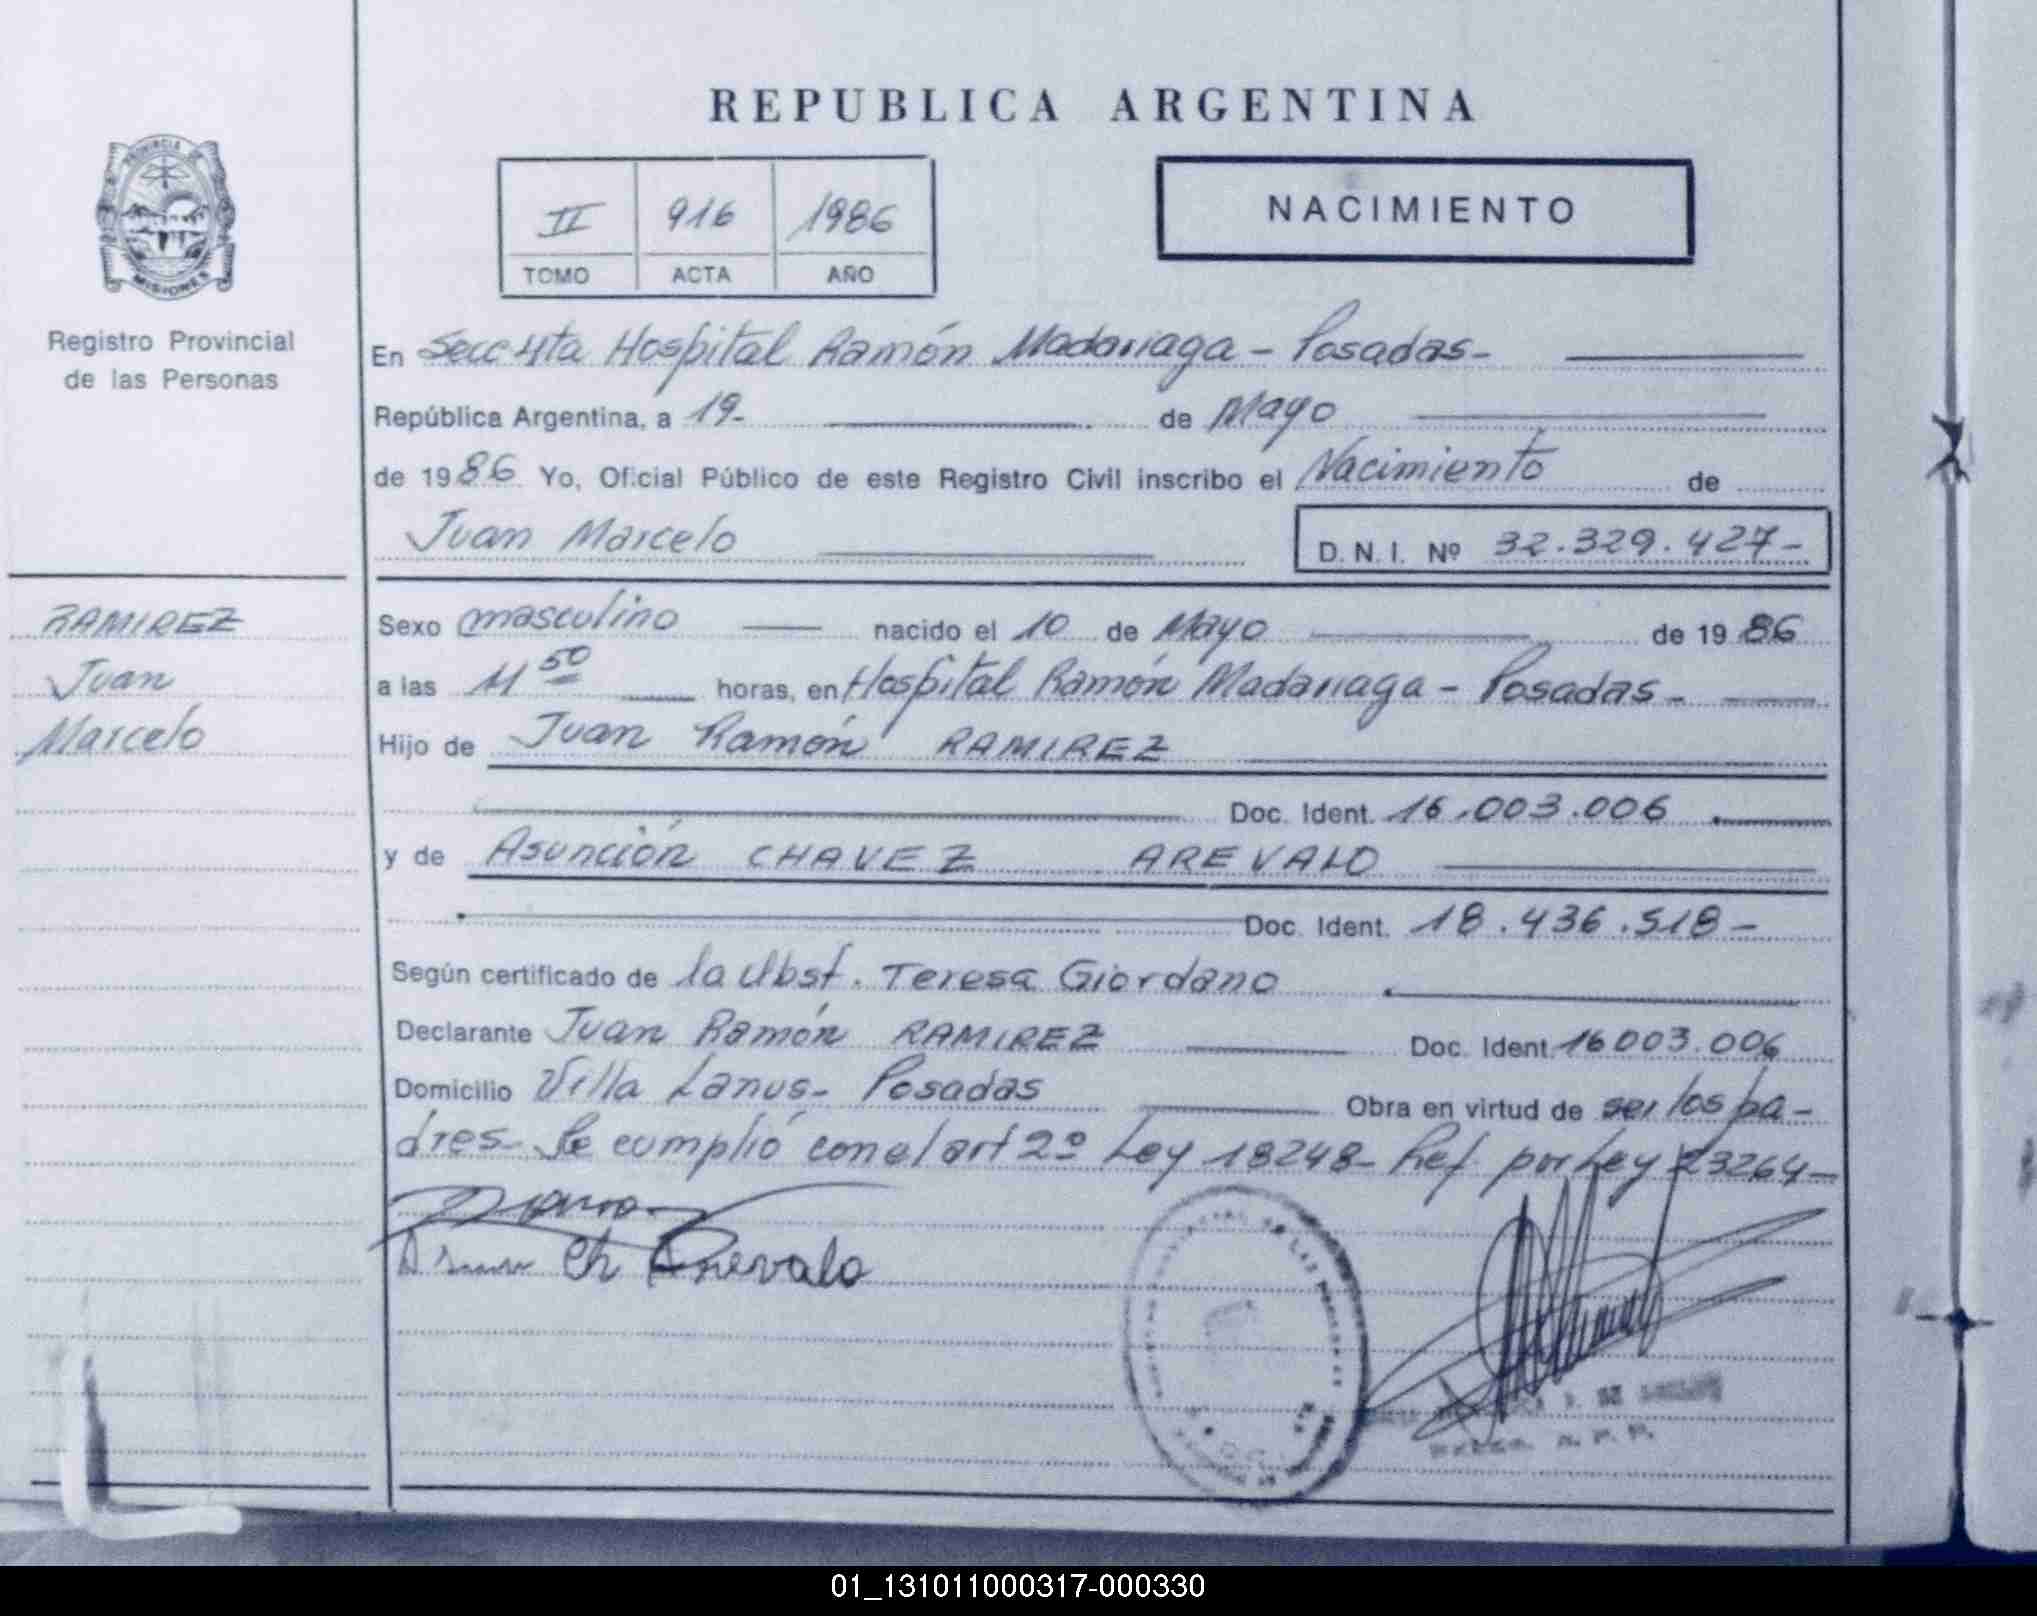 REPUBLICA ARGENTINA
PROVINCIA DE
MISIONES
Registro Provincial
de las Personas
II 916 1986
TOMO ACTA AÑO
NACIMIENTO
En Secc 4ta Hospital Ramón Madariaga - Posadas -
República Argentina, a 19- de Mayo
de 1986 Yo, Oficial Público de este Registro Civil inscribo el Nacimiento de
Juan Marcelo D.N.I. Nº 32.329.427-
RAMIREZ
Juan
Marcelo
Sexo masculino nacido el 10 de Mayo de 1986
a las 11 50 horas, en Hospital Ramón Madariaga - Posadas -
Hijo de Juan Ramón RAMIREZ
Doc. Ident. 16.003.006
y de Asunción CHAVEZ AREVALO
Doc. Ident. 18.436.518-
Según certificado de la Obst. Teresa Giordano
Declarante Juan Ramón RAMIREZ Doc. Ident. 16003.006
Domicilio Villa Lanus - Posadas Obra en virtud de ser los pa-
dres- Se cumplió con el art 2º Ley 18248- Ref. por Ley 23264-
Ch Arevalo
01_131011000317-000330